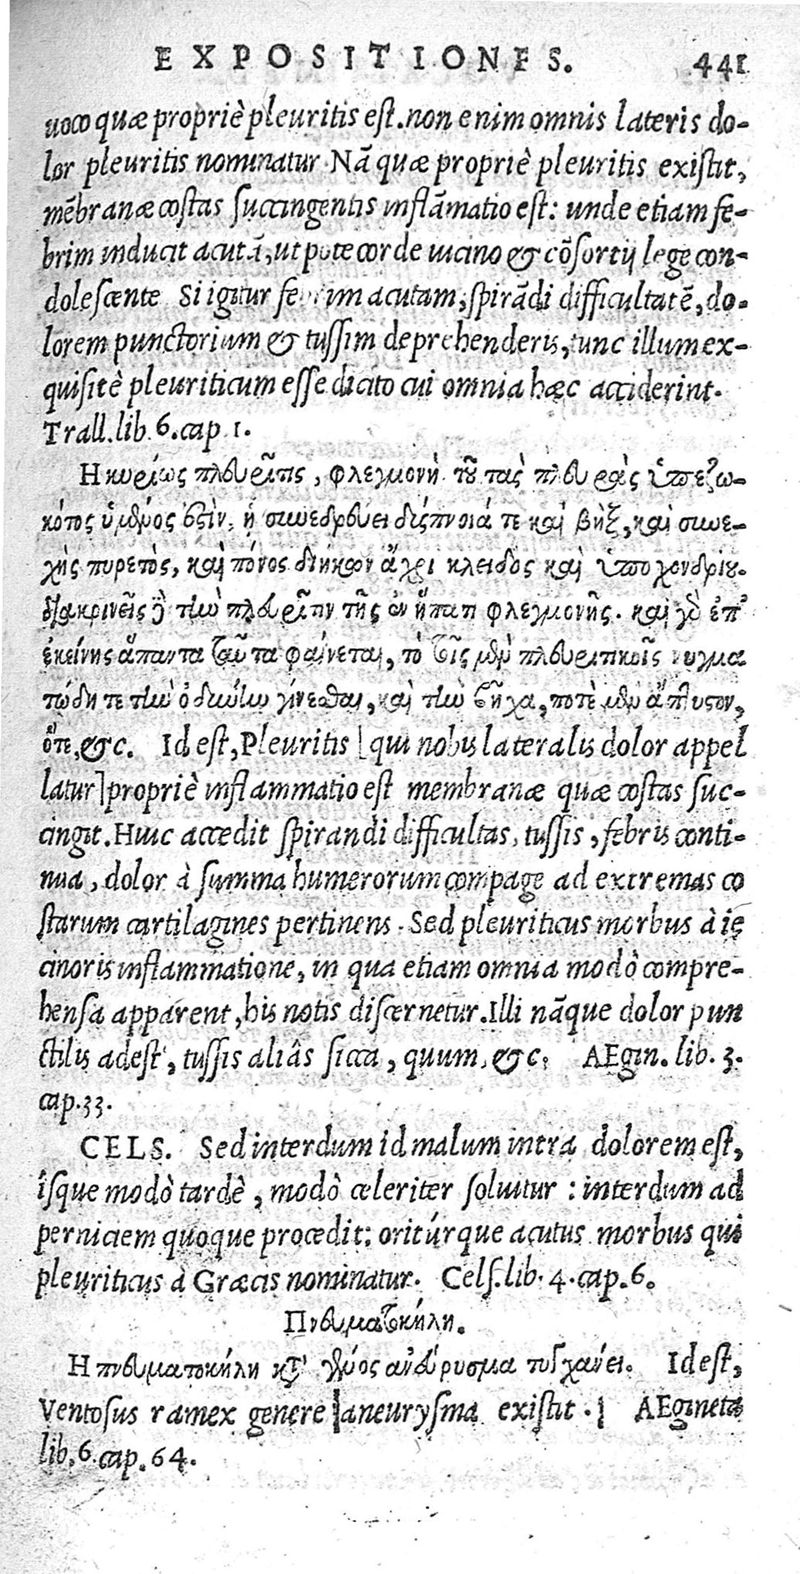 EXPOSITIONES. 441
uoco quæ propriè pleuritis est. non enim omnis lateris do-
lor pleuritis nominatur Nā quæ propriè pleuritis existit,
mēbranæ costas succingentis inflāmatio est: unde etiam fe-
brim inducit acutā, ut pote corde uicino & cōsortij lege con-
dolescente Si igitur febrim acutam, spirādi difficultatē, do-
lorem punctorium & tussim deprehenderis, tunc illum ex-
quisitè pleuriticum esse dicito cui omnia hæc acciderint.
Trall. lib. 6. cap 1.
Η κυρίως πλευρῖτις, φλεγμονὴ τοῦ τὰς πλευρὰς ὑπεζω-
κότος ὑμένος ἐστὶν, ᾗ συνεδρεύει δύσπνοιά τε καὶ βὴξ, καὶ συνε-
χὴς πυρετὸς, καὶ πόνος διήκων ἄχρι κλειδὸς καὶ ὑποχονδρίου.
διακρινεῖς δὲ τὴν πλευρῖτιν τῆς ἐν ἥπατι φλεγμονῆς. καὶ γὰρ ἐπ'
ἐκείνης ἅπαντα ταῦτα φαίνεται, τὸ τοῖς μὲν πλευριτικοῖς νυγμα
τώδη τε τὴν ὀδύνην γίνεσθαι, καὶ τὴν βῆχα, ποτὲ μὲν ἄπτυστον,
ὅτε, &c. Id est, Pleuritis [qui nobis lateralis dolor appel
latur] propriè inflammatio est membranæ quæ costas suc-
cingit. Huic accedit spirandi difficultas, tussis, febris conti-
nua, dolor à summa humerorum compage ad extremas co
starum cartilagines pertinens. Sed pleuriticus morbus à ie
cinoris inflammatione, in qua etiam omnia modò compre-
hensa apparent, his notis discernetur. Illi nāque dolor pun
ctilis adest, tussis aliâs sicca, quum, &c. AEgin. lib. 3.
cap. 33.
CELS. Sed interdum id malum intra dolorem est,
isque modò tardè, modò celeriter soluitur: interdum ad
perniciem quoque procedit: oritúrque acutus morbus qui
pleuriticus à Græcis nominatur. Cels. lib. 4. cap. 6.
Πνευματοκήλη.
Η πνευματοκήλη κτ' γένος ἀνεύρυσμα τυγχάνει. Id est,
Ventosus ramex genere [aneurysma existit.] AEgineta
lib. 6. cap. 64.